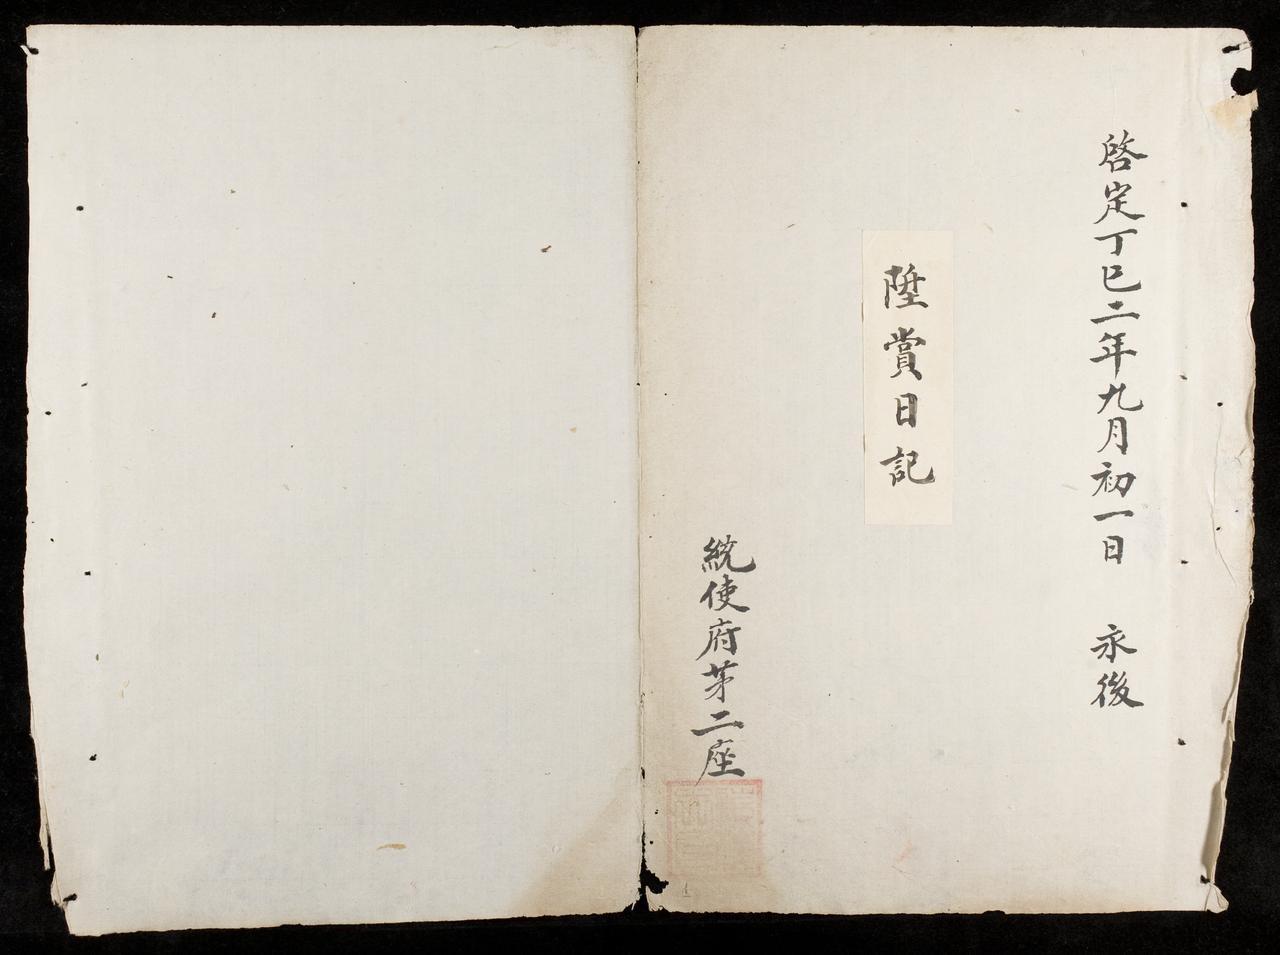 啓定丁巳二年九月初一日 永後
陞賞日記
統使府茅二座
1